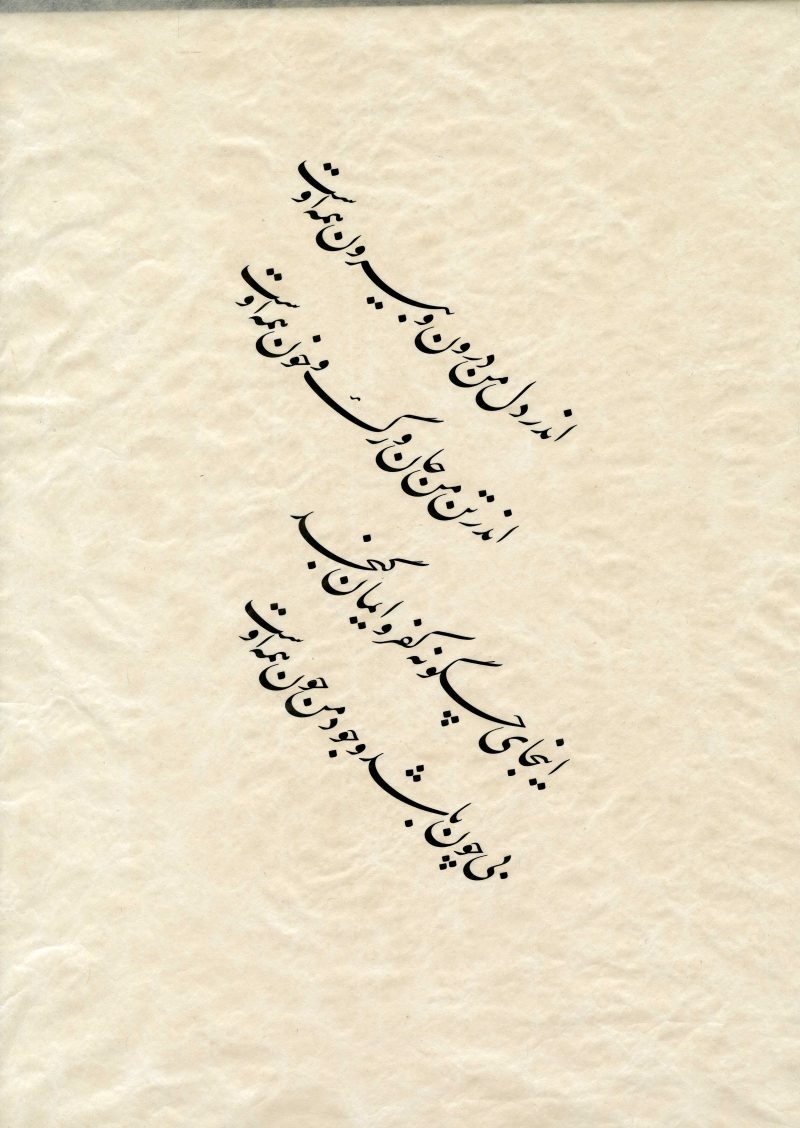 اندر دل من درون و بیرون همه اوست
اندر تن من جان و رگ و خون همه اوست
اینجای چگونه کفر و ایمان گنجد
بی‌چون باشد وجود من چون همه اوست